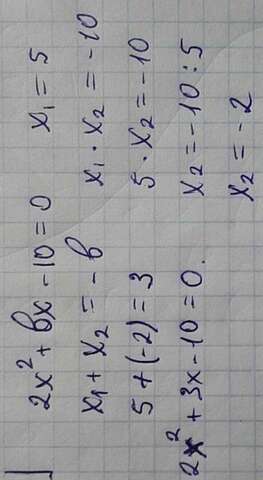 2x² + bx - 10 = 0   x₁ = 5
x₁ + x₂ = - b   x₁ · x₂ = -10
5 + (-2) = 3   5 · x₂ = -10
2x² + 3x - 10 = 0.   x₂ = -10 : 5
x₂ = -2